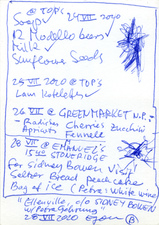 @ TOP'S
Soap 24 VII 2020
12 Modello bears
Milk
Sunflower Seeds
25 VII 2020 @ TOP'S
Lam Koteletter
26 VII @ GREENMARKET N.P.
Radishes Cherries Zucchini
Apricots Fennell
28 VII @ EMANUEL'S
STONERIDGE
for Sidney Bowen Visit
Selzer Bread peach cakes
Bag of ice (Petra: White wine)
"Ellenville, c/o SIDNEY BOWEN
w/ Petra
28 VII 2020